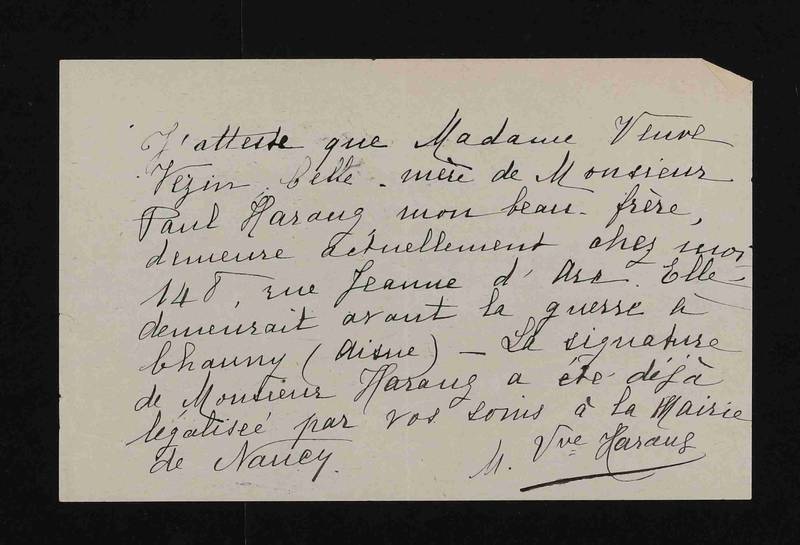 J'atteste que Madame Veuve
Vezin, belle-mère de Monsieur
Paul Harang, mon beau-frère,
demeure actuellement chez moi
148, rue Jeanne d'Arc. Elle
demeurait avant la guerre à
Chauny (Aisne) — La signature
de Monsieur Harang a été déjà
légalisée par vos soins à la Mairie
de Nancy.
M. Vve Harang